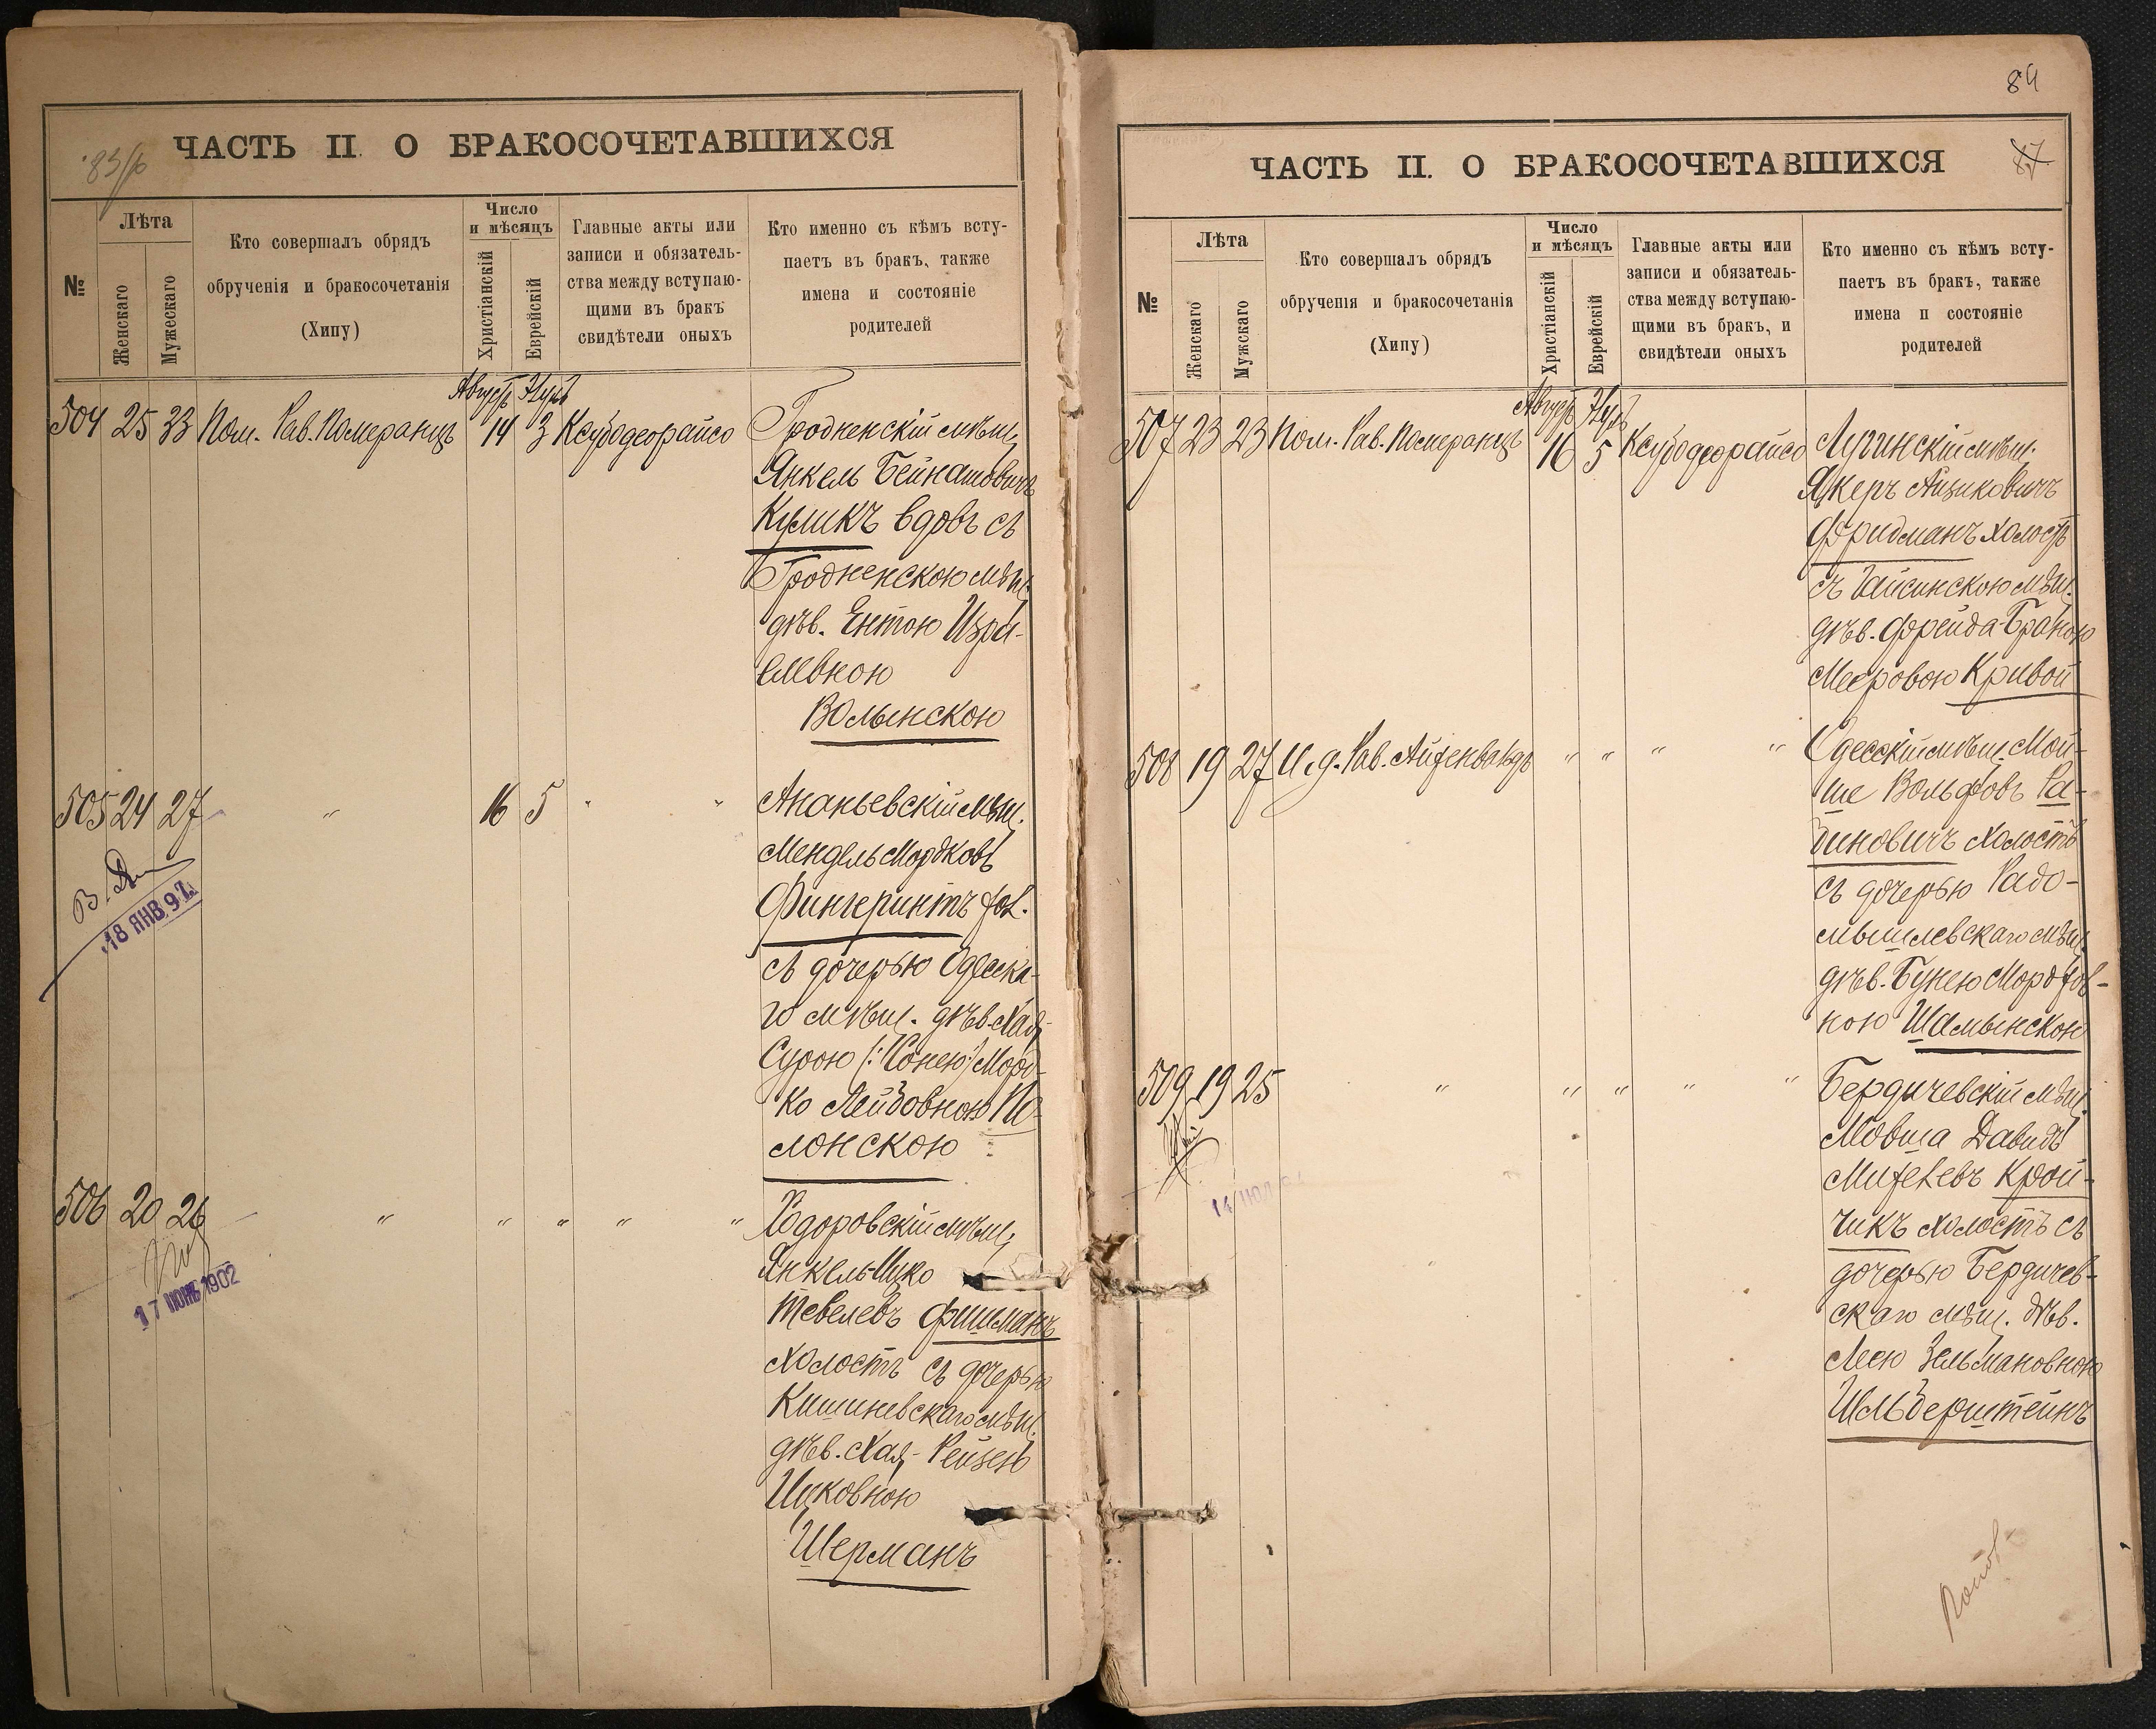 83/об
ЧАСТЬ II. О БРАКОСОЧЕТАВШИХСЯ
№
Лѣта
Женскаго
Мужескаго
Кто совершалъ обрядъ
обрученія и бракосочетанія
(Хипу)
Число
и мѣсяцъ
Христіанскій
Еврейскій
Главные акты или
записи и обязатель-
ства между вступаю-
щими въ бракъ
свидѣтели оныхъ
Кто именно съ кѣмъ всту-
паетъ въ бракъ, также
имена и состояніе
родителей
Августъ
504 25 33 Пом. Рав. Померанцъ 14 3 Ксубодеорайсо Гродненскій мѣщ.
Янкель Бейнашовичъ
Куликъ вдовъ съ
Гродненскою мѣщ.
дѣв. Ентою Изра-
илевною
Волынскою
505 24 27 " 16 5 " " Ананьевскій мѣщ.
Мендель Мордковъ
Фингеринтъ хол.
съ дочерью Одесска-
го мѣщ. дѣв. Хая-
Сурою (:Сонею:) Морд-
ко Лейбовною По-
лонскою
18 ЯНВ. 97.
506 20 26 " " " " " Ходоровскій мѣщ.
Янкель-Ицко
Тевелевъ Фишманъ
холостъ съ дочерью
Кишиневскаго мѣщ.
дѣв. Хая-Рейзею
Ицковною
Шерманъ
17 ИЮНЬ 1902
84
ЧАСТЬ II. О БРАКОСОЧЕТАВШИХСЯ
87
№
Лѣта
Женскаго
Мужскаго
Кто совершалъ обрядъ
обрученія и бракосочетанія
(Хипу)
Число
и мѣсяцъ
Христіанскій
Еврейскій
Главные акты или
записи и обязатель-
ства между вступаю-
щими въ бракъ, и
свидѣтели оныхъ
Кто именно съ кѣмъ всту-
паетъ въ бракъ, также
имена и состояніе
родителей
Августъ
507 23 23 Пом. Рав. Померанцъ 16 5 Ксубодеорайсо Лугинскій мѣщ.
Айзиковичъ
Фридманъ холостъ
съ Гайсинскою мѣщ.
дѣв. Фрейда-Браною
Мееровою Кривой
508 19 27 И. д. Рав. Айзенвандъ " " " " Одесскій мѣщ. Мой-
ше Вольфовъ Ра-
биновичъ холостъ
съ дочерью Радо-
мысльевскаго мѣщ.
дѣв. Бунею Мордков-
ною Шамынскою
509 19 25 " " " " " Бердичевскій мѣщ.
Мовша Давидъ
Михелевъ Крой-
чикъ холостъ съ
дочерью Бердичев-
скаго мѣщ. дѣв.
Леею Зельмановною
Шльберштейнъ
14 ИЮЛ